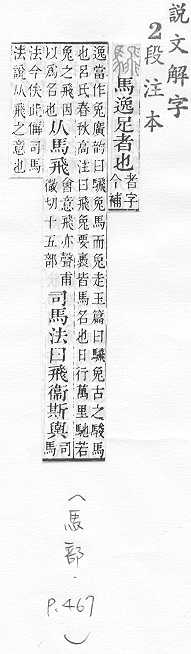 說文解字
2段注本
騛
馬逸足者也
者字
今補
逸當作兔廣韵曰騛兔馬而兔走玉篇曰騛兔古之駿馬
也呂氏春秋高注曰飛兔要褭皆馬名也日行萬里馳若
兔之飛因
以爲名也
从馬飛
會意飛亦聲甫
微切十五部
司馬法曰飛衞斯輿
司
馬
法今佚此偁司馬
法說从飛之意也
(馬部.P.467)